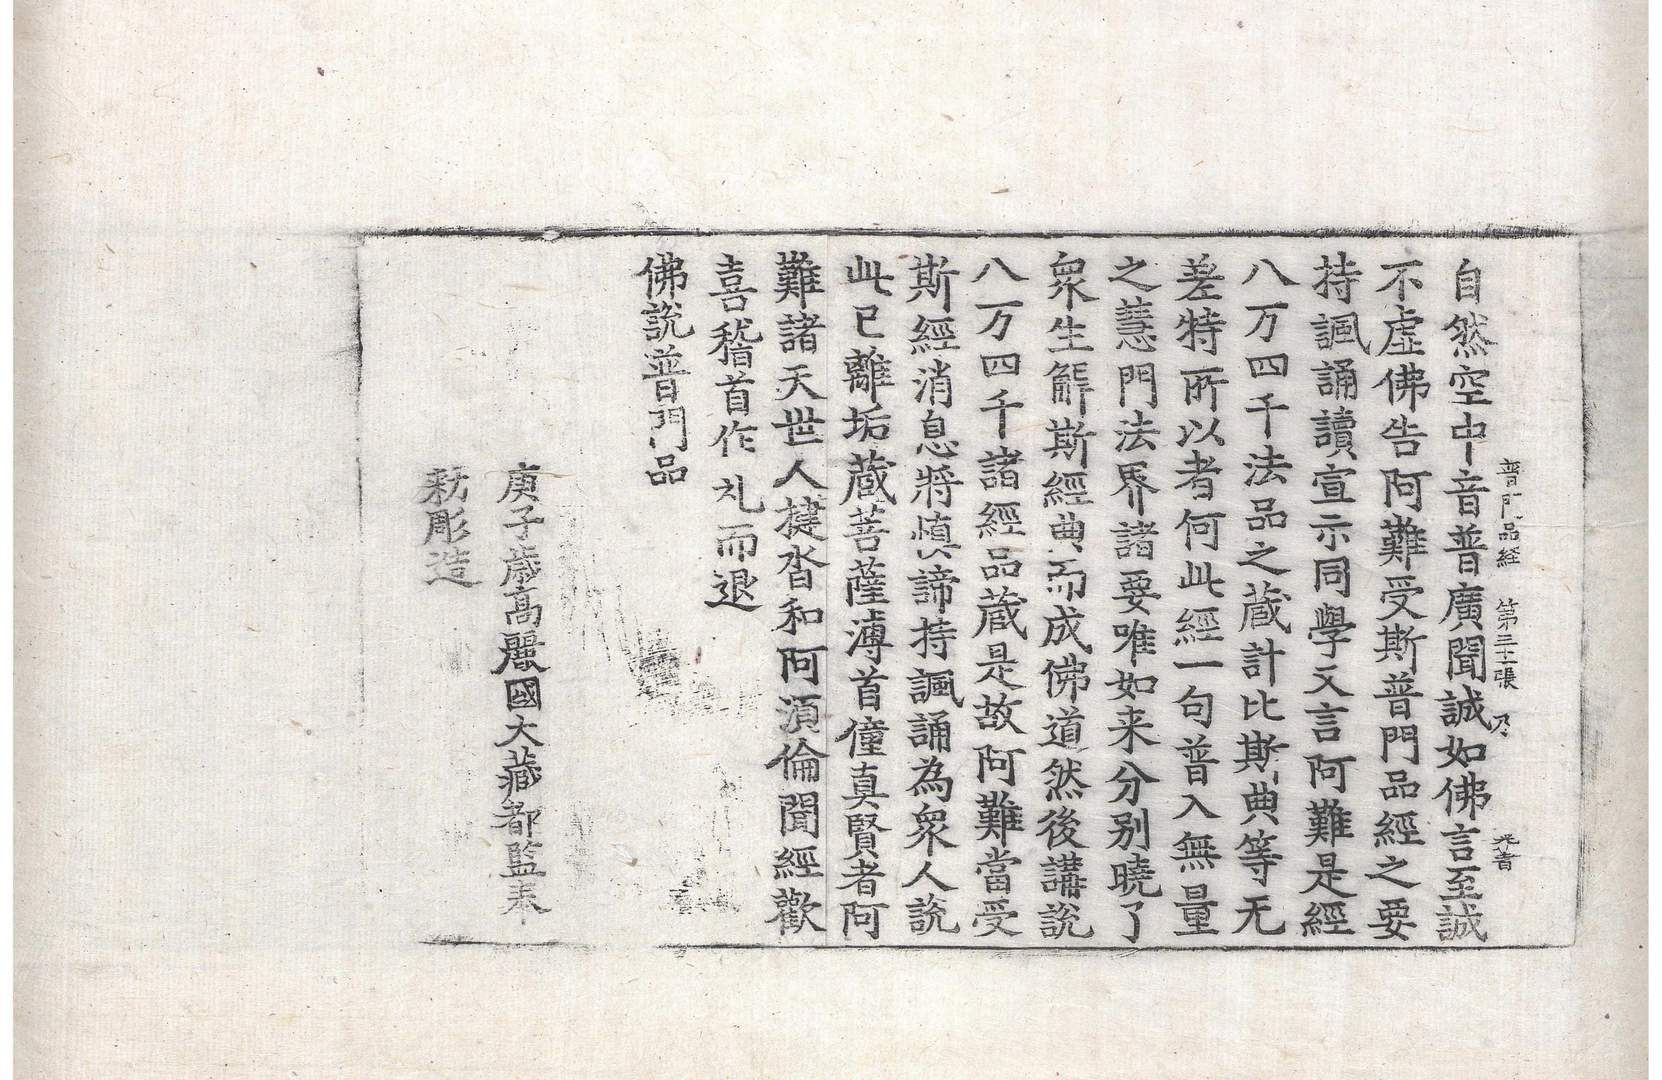 普門品経 第三十二張 乃 光書
自然空中音普廣聞誠如佛言至誠
不虛佛告阿難受斯普門品經之要
持諷誦讀宣示同學又言阿難是經
八万四千法品之蔵計比斯典等无
差特所以者何此經一句普入無量
之慧門法界諸要唯如来分別曉了
衆生解斯經典而成佛道然後講説
八万四千諸經品蔵是故阿難當受
斯經消息將慎諦持諷誦為衆人說
此已離垢蔵菩薩溥首僮真賢者阿
難諸天世人揵沓和阿須倫聞經歡
喜稽首作礼而退
佛說普門品
庚子歳髙麗國大藏都監奉
勑彫造